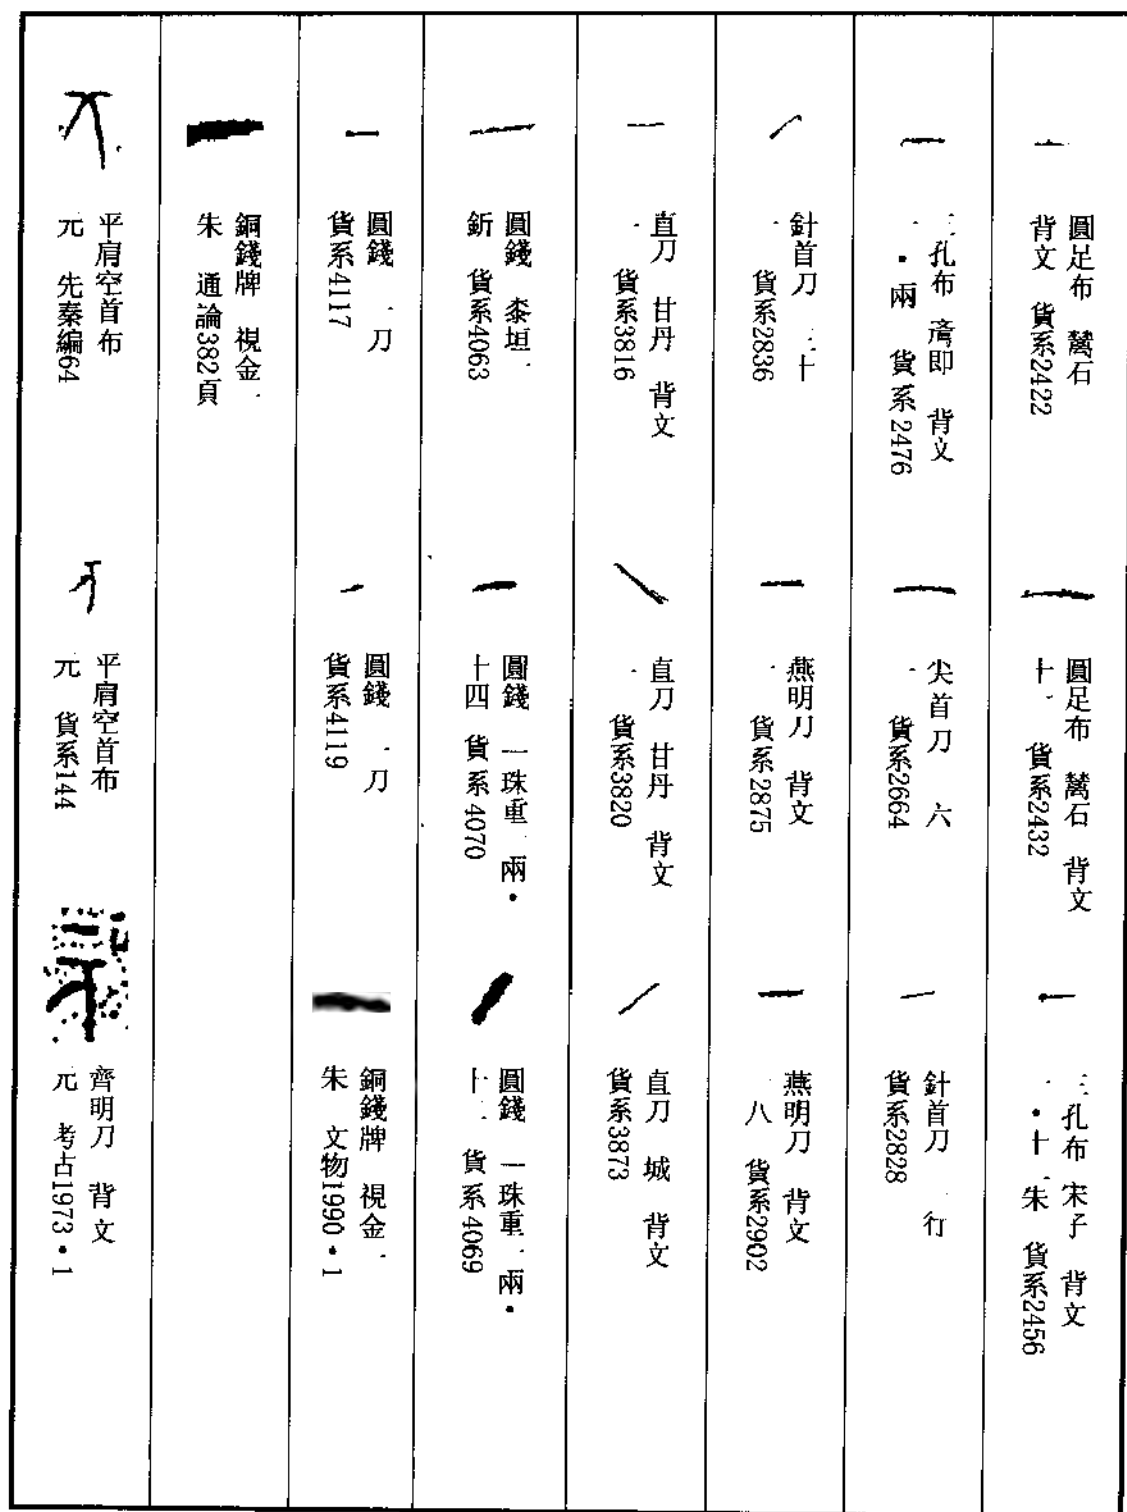 圓足布 石
背文 一 貨系2422
圓足布 石 背文
十一 貨系2432
三孔布 宋子 背文
一・十二朱 貨系2456
三孔布 即 背文
一・兩 貨系2476
尖首刀 六
一 貨系2664
針首刀 一行
貨系2828
針首刀 二十
一 貨系2836
燕明刀 背文
一 貨系2875
燕明刀 背文
一八 貨系2902
直刀 甘丹 背文
一 貨系3816
直刀 甘丹 背文
一 貨系3820
直刀 城 背文
貨系3873
圓錢 桼垣一
釿 貨系4063
圓錢 一珠重一兩・
十四 貨系4070
圓錢 一珠重一兩・
十二 貨系4069
圓錢 一刀
貨系4117
圓錢 一刀
貨系4119
銅錢牌 視金一
朱 文物1990・1
銅錢牌 視金一
朱 通論382頁
平肩空首布
元 先秦編64
平肩空首布
元 貨系144
齊明刀 背文
元 考古1973・1